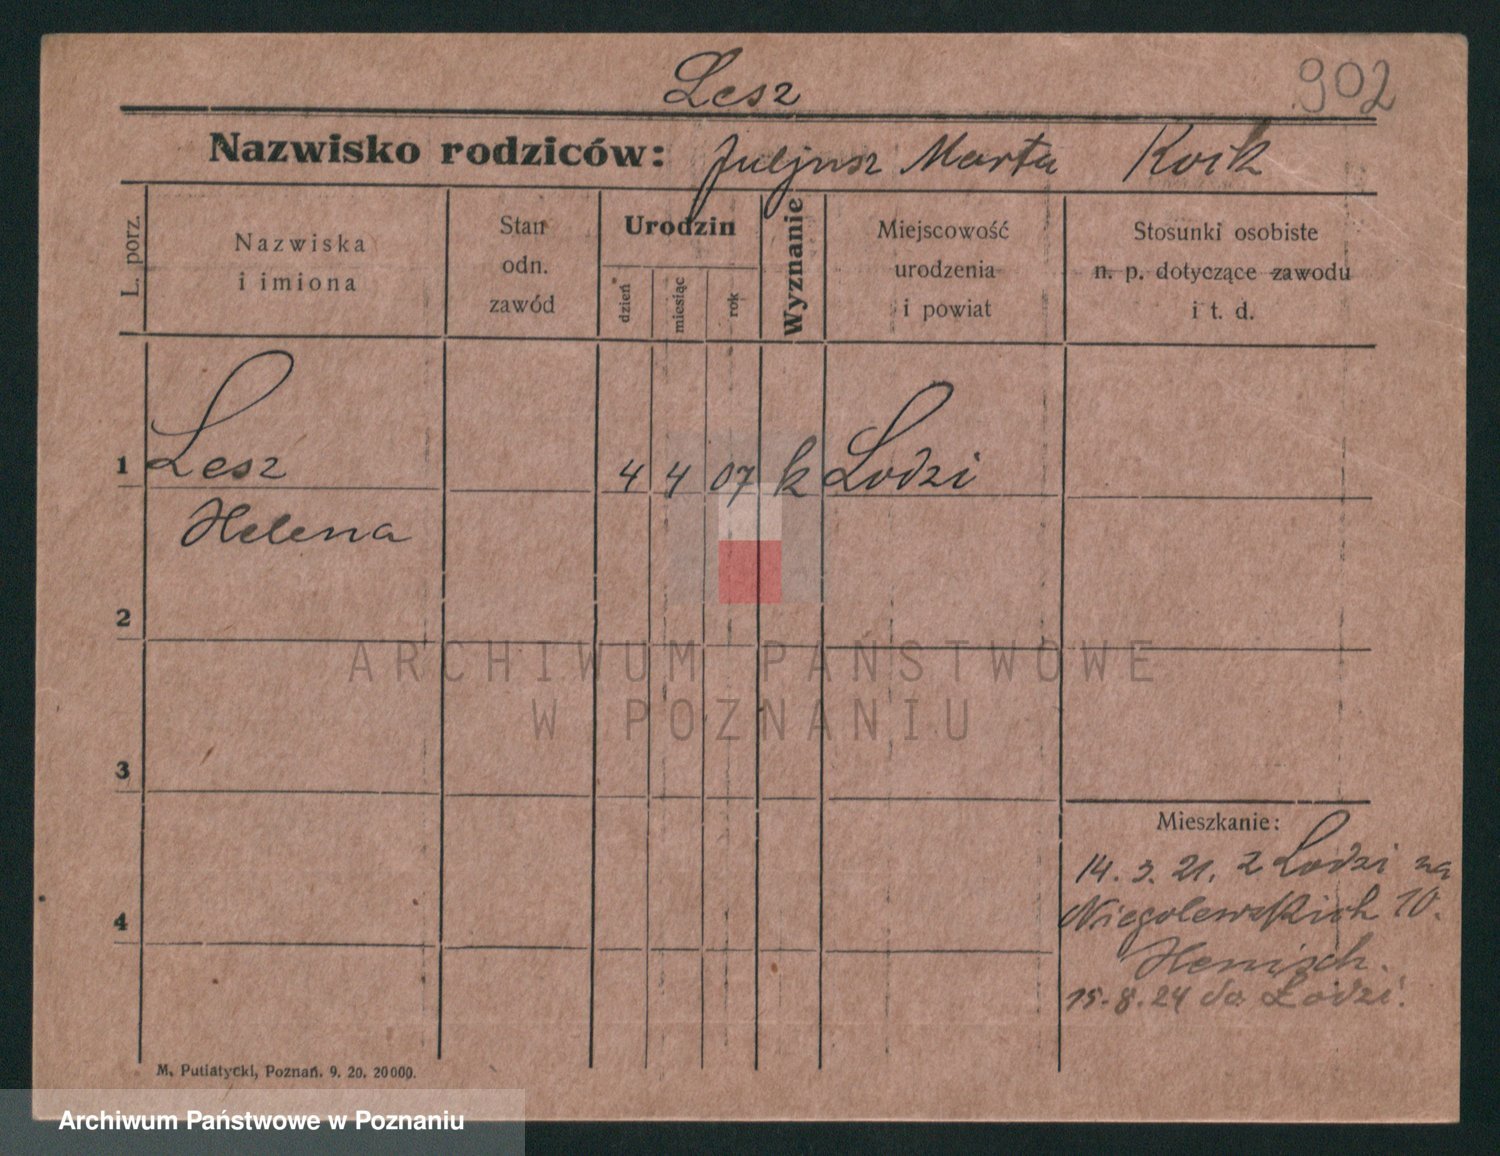 Lesz
902
Nazwisko rodziców: Juljusz Marta Kocik
L. porz.
Nazwiska
i imiona
Stan
odn.
zawód
Urodzin
dzień
miesiąc
rok
Wyznanie
Miejscowość
urodzenia
i powiat
Stosunki osobiste
n. p. dotyczące zawodu
i t. d.
1 Lesz 4 4 07 k Lodzi
Helena
2
ARCHIWUM PAŃSTWOWE
W POZNANIU
3
Mieszkanie:
14. 3. 21. z Lodzi na
4 Niegolewskich 10.
15-8.24 do Lodzi.
M. Putiatycki, Poznań. 9. 20. 20000.
Archiwum Państwowe w Poznaniu